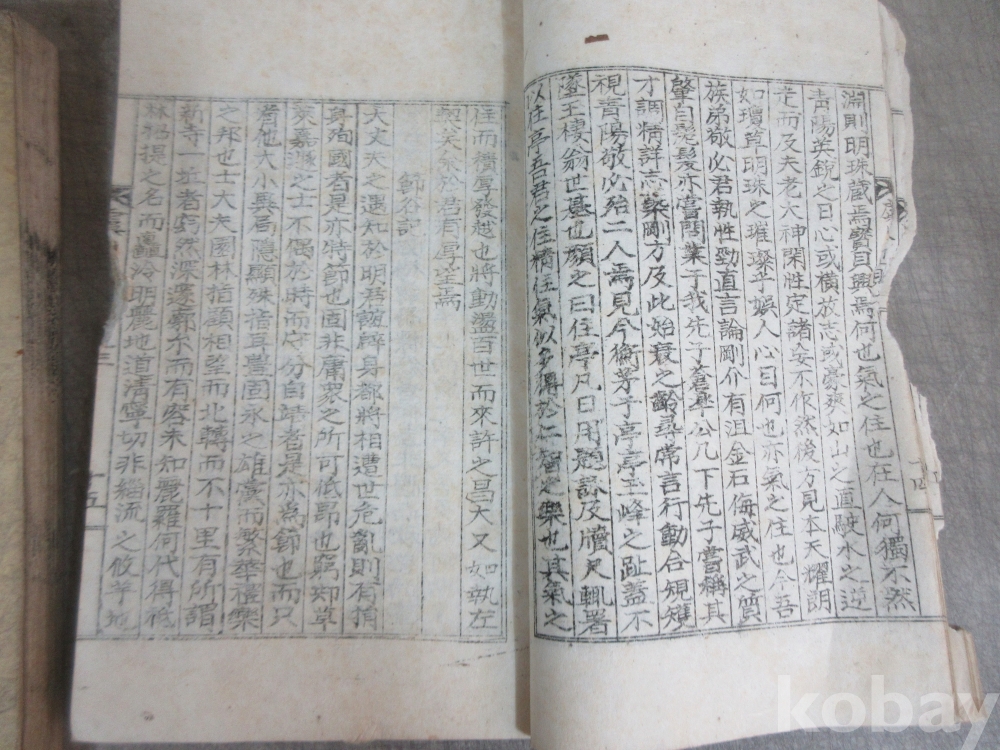 淵則明珠藏焉寶貝興焉何也氣之住也在人何獨不然
靑陽英銳之日心或橫放志或豪爽如山之直駛水之逆
走而及夫老大神閑性定諸妄不作然後方見本天耀朗
如瓊草明珠之璀璨乎娛人心目何也亦氣之住也今吾
族弟敬必君執性勁直言論剛介有沮金石侮威武之質
肇自髫髮亦嘗問業于我先子蒼阜公几下先子嘗稱其
才調精詳志槩剛方及此始衰之齡尋常言行動合規矩
視靑陽敬必殆二人焉見今構茅于亭亭玉峰之趾蓋不
墜王棲翁世基也顔之曰住亭凡日用題誌及牘尺輒署
以住亭吾君之住精住氣似多得於二智之樂也其氣之
住而積厚發越也將動盪百世而來許之昌大又如執左
契矣余於君有厚望焉
節公記
大丈夫之遇知於明君館辟身都將相遭世危亂則有捐
身殉國者是亦特節也固非庸衆之所可低昂也窮知草
萊嘉遯之士不偶於時而守分自靖者是亦爲節也而只
着他大小無局隱顯殊指耳豊固永之雄嶺而繁華禮樂
之邦也士大夫園林指顧相望而北轉而不十里有所謂
新寺一址者窈然深邃廓尔而有容未知麗羅何代得祗
林招提之名而 泠明麗地道淸寧切非緇流之攸芋地
十五
kobay